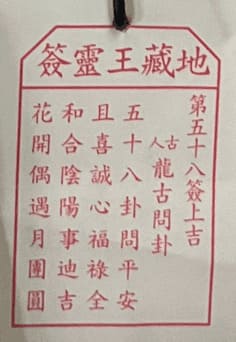 地藏王靈簽
第五十八簽上吉
古人龍古問卦
五十八卦問平安
且喜誠心福祿全
和合陰陽事迪吉
花開偶遇月團圓